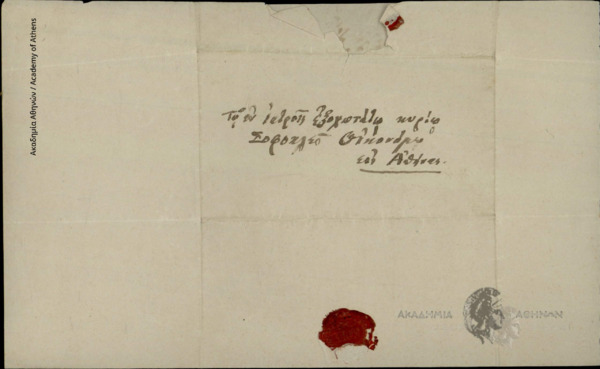 Ακαδημία Αθηνών / Academy of Athens
Τῷ ἐν ἰατροῖς ἐξοχωτάτῳ κυρίῳ
Σοφοκλεῖ Οἰκονόμῳ
εἰς Ἀθήνας.
ΑΚΑΔΗΜΙΑ ΑΘΗΝΩΝ